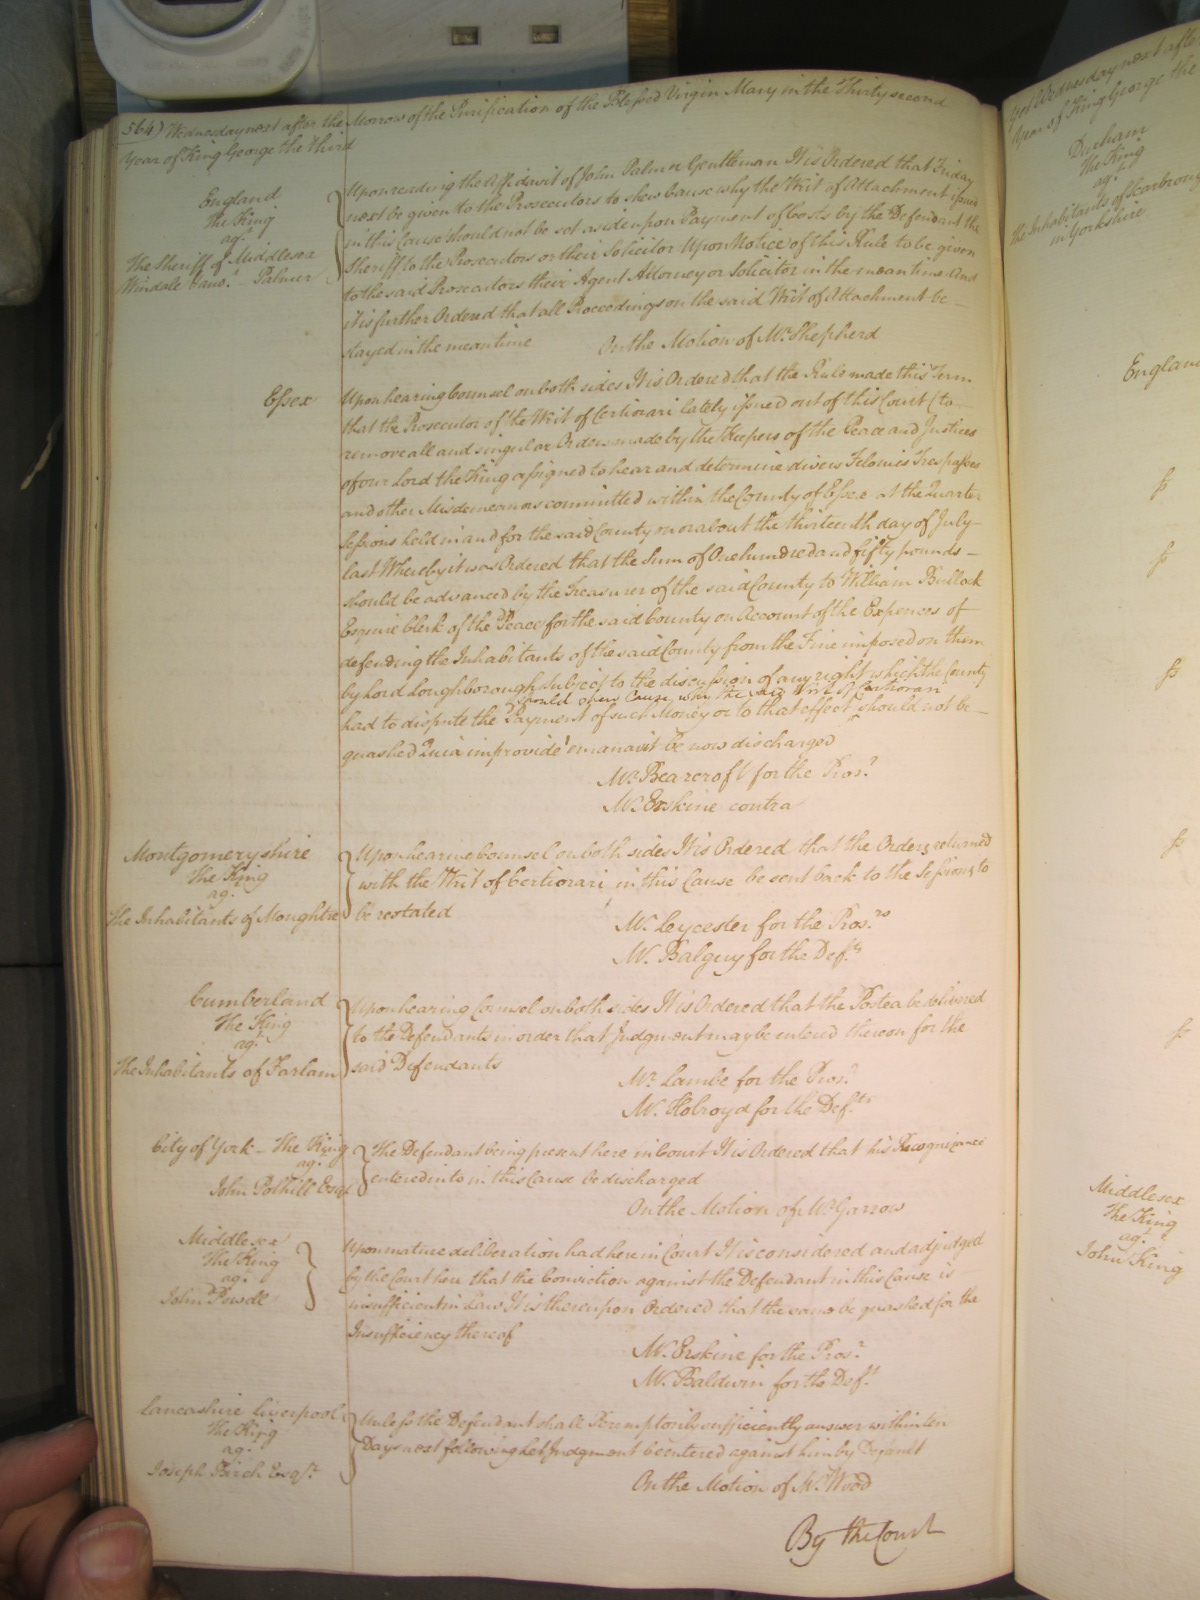 564) Wednesday next after the Morrow of the Purification of the Blessed Virgin Mary in the Thirty second
Year of King George the third
England
The King
agt.
The Sheriff of Middlesex
Palmer
Upon reading the Affidavit of John Palmer Gentleman It is Ordered that Friday
next be given to the Prosecutors to shew Cause why the Writ of Attachment issued
in this Cause should not be set aside upon Payment of Costs by the Defendant the
Sheriff to the Prosecutors or their Solicitor Upon Notice of this Rule to be given
to the said Prosecutors their Agent Attorney or Solicitor in the mean time And
it is further Ordered that all Proceedings on the said Writ of Attachment be
stayed in the mean time
On the Motion of Mr. Shepherd
Essex
Upon hearing Counsel on both sides It is Ordered that the Rule made this Term
that the Prosecutor of the Writ of Certiorari lately issued out of this Court (to
remove all and singular Orders made by the Keepers of the Peace and Justices
of our Lord the King assigned to hear and determine divers Felonies Trespasses
and other Misdemeanors committed within the County of Essex at the Quarter
Sessions held in and for the said County on or about the thirteenth day of July
last Whereby it was Ordered that the Sum of One hundred and fifty pounds
should be advanced by the Treasurer of the said County to William Bullock
Esquire Clerk of the Peace for the said County on Account of the Expences of
defending the Inhabitants of the said County from the Fine imposed on them
by Lord Loughborough, subject to the discussion of any right which the County
should shew Cause why the said Writ of Certiorari
had to dispute the Payment of such Money or to that effect should not be
quashed Quia improvide emanavit be now discharged
Mr. Bearcroft for the Prosr.
Mr. Erskine contra
Montgomeryshire
The King
agt.
The Inhabitants of Moughtre
Upon hearing Counsel on both sides It is Ordered that the Orders returned
with the Writ of Certiorari in this Cause be sent back to the Sessions to
be restated
Mr. Leycester for the Prosrs.
Mr. Balguy for the Defts.
Cumberland
The King
agt.
The Inhabitants of Farlam
Upon hearing Counsel on both sides It is Ordered that the Postea be delivered
to the Defendants in order that Judgment may be entered thereon for the
said Defendants
Mr. Lambe for the Prosr.
Mr. Holroyd for the Defts.
City of York - The King
agt.
John Polhill Esqr.
The Defendant being present here in Court It is Ordered that his Recognizance
entered into in this Cause be discharged
On the Motion of Mr. Garrow
Middlesex
The King
agt.
John Powdle
Upon mature deliberation had here in Court It is considered and adjudged
by the Court here that the Conviction against the Defendant in this Cause is
insufficient in Law It is thereupon Ordered that the same be quashed for the
Insufficiency thereof
Mr. Erskine for the Prosr.
Mr. Baldwin for the Deft.
Lancashire Liverpool
The King
agt.
Joseph Birch Esqr.
Unless the Defendant shall Peremptorily sufficiently answer within ten
Days next following let Judgment be entered against him by Default
On the Motion of Mr. Wood
By the Court
Wednesday next after
Year of King George the
Durham
The King
agt.
The Inhabitants of Scarbrough
in Yorkshire
England
Middlesex
The King
agt.
John King